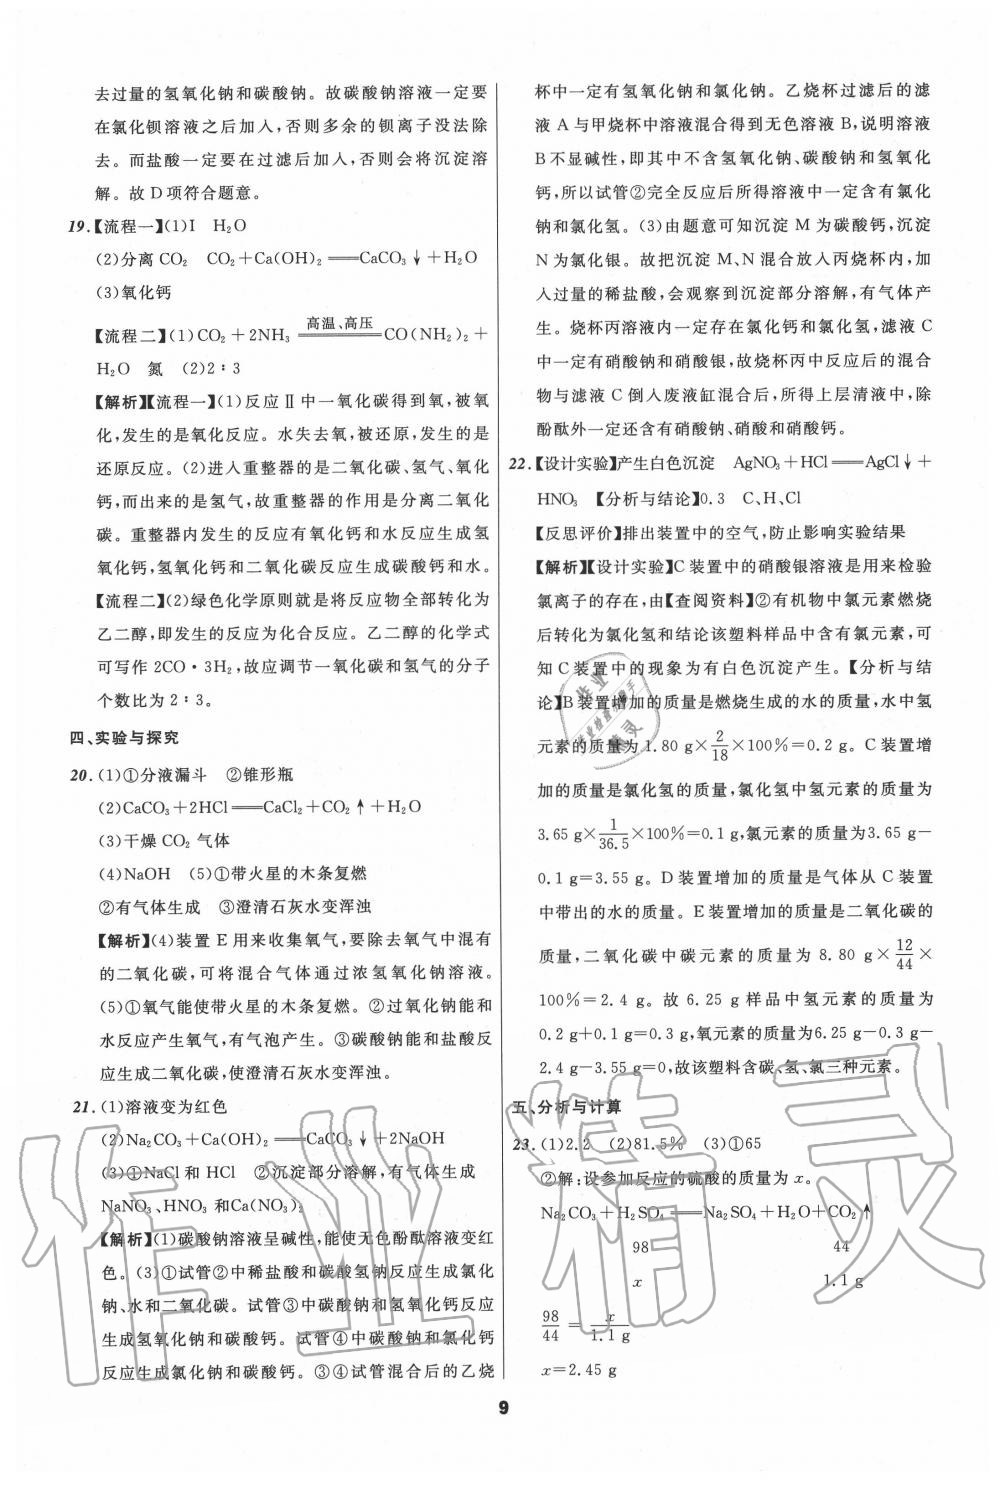 去过量的氢氧化钠和碳酸钠。故碳酸钠溶液一定要
在氯化钡溶液之后加入,否则多余的钡离子没法除
去。而盐酸一定要在过滤后加入,否则会将沉淀溶
解。故D项符合题意。
19.【流程一】(1)Ⅰ H₂O
(2)分离CO₂ CO₂+Ca(OH)₂══CaCO₃↓+H₂O
(3)氧化钙
【流程二】(1)CO₂+2NH₃ 高温、高压══ CO(NH₂)₂+
H₂O 氮 (2)2∶3
【解析】【流程一】(1)反应Ⅱ中一氧化碳得到氧,被氧
化,发生的是氧化反应。水失去氧,被还原,发生的是
还原反应。(2)进入重整器的是二氧化碳、氢气、氧化
钙,而出来的是氢气,故重整器的作用是分离二氧化
碳。重整器内发生的反应有氧化钙和水反应生成氢
氧化钙,氢氧化钙和二氧化碳反应生成碳酸钙和水。
【流程二】(2)绿色化学原则就是将反应物全部转化为
乙二醇,即发生的反应为化合反应。乙二醇的化学式
可写作2CO·3H₂,故应调节一氧化碳和氢气的分子
个数比为2∶3。
四、实验与探究
20.(1)①分液漏斗 ②锥形瓶
(2)CaCO₃+2HCl══CaCl₂+CO₂↑+H₂O
(3)干燥CO₂气体
(4)NaOH (5)①带火星的木条复燃
②有气体生成 ③澄清石灰水变浑浊
【解析】(4)装置E用来收集氧气,要除去氧气中混有
的二氧化碳,可将混合气体通过浓氢氧化钠溶液。
(5)①氧气能使带火星的木条复燃。②过氧化钠能和
水反应产生氧气,有气泡产生。③碳酸钠能和盐酸反
应生成二氧化碳,使澄清石灰水变浑浊。
21.(1)溶液变为红色
(2)Na₂CO₃+Ca(OH)₂══CaCO₃↓+2NaOH
(3)①NaCl和HCl ②沉淀部分溶解,有气体生成
NaNO₃、HNO₃和Ca(NO₃)₂
【解析】(1)碳酸钠溶液呈碱性,能使无色酚酞溶液变红
色。(3)①试管②中稀盐酸和碳酸氢钠反应生成氯化
钠、水和二氧化碳。试管③中碳酸钠和氢氧化钙反应
生成氢氧化钠和碳酸钙。试管④中碳酸钠和氯化钙
反应生成氯化钠和碳酸钙。③④试管混合后的乙烧
杯中一定有氢氧化钠和氯化钠。乙烧杯过滤后的滤
液A与甲烧杯中溶液混合得到无色溶液B,说明溶液
B不显碱性,即其中不含氢氧化钠、碳酸钠和氢氧化
钙,所以试管②完全反应后所得溶液中一定含有氯化
钠和氯化氢。(3)由题意可知沉淀M为碳酸钙,沉淀
N为氯化银。故把沉淀M、N混合放入丙烧杯内,加
入过量的稀盐酸,会观察到沉淀部分溶解,有气体产
生。烧杯丙溶液内一定存在氯化钙和氯化氢,滤液C
中一定有硝酸钠和硝酸银,故烧杯丙中反应后的混合
物与滤液C倒入废液缸混合后,所得上层清液中,除
酚酞外一定还含有硝酸钠、硝酸和硝酸钙。
22.【设计实验】产生白色沉淀 AgNO₃+HCl══AgCl↓+
HNO₃ 【分析与结论】0.3 C、H、Cl
【反思评价】排出装置中的空气,防止影响实验结果
【解析】【设计实验】C装置中的硝酸银溶液是用来检验
氯离子的存在,由【查阅资料】②有机物中氯元素燃烧
后转化为氯化氢和结论该塑料样品中含有氯元素,可
知C装置中的现象为有白色沉淀产生。【分析与结
论】B装置增加的质量是燃烧生成的水的质量,水中氢
元素的质量为1.80 g×2/18×100%=0.2 g。C装置增
加的质量是氯化氢的质量,氯化氢中氢元素的质量为
3.65 g×1/36.5×100%=0.1 g,氯元素的质量为3.65 g-
0.1 g=3.55 g。D装置增加的质量是气体从C装置
中带出的水的质量。E装置增加的质量是二氧化碳的
质量,二氧化碳中碳元素的质量为8.80 g×12/44×
100%=2.4 g。故6.25 g样品中氢元素的质量为
0.2 g+0.1 g=0.3 g,氧元素的质量为6.25 g-0.3 g-
2.4 g-3.55 g=0 g,故该塑料含碳、氢、氯三种元素。
五、分析与计算
23.(1)2.2 (2)81.5% (3)①65
②解:设参加反应的硫酸的质量为x。
Na₂CO₃+H₂SO₄══Na₂SO₄+H₂O+CO₂↑
98 44
x 1.1 g
98/44=x/1.1 g
x=2.45 g
9
作业精灵